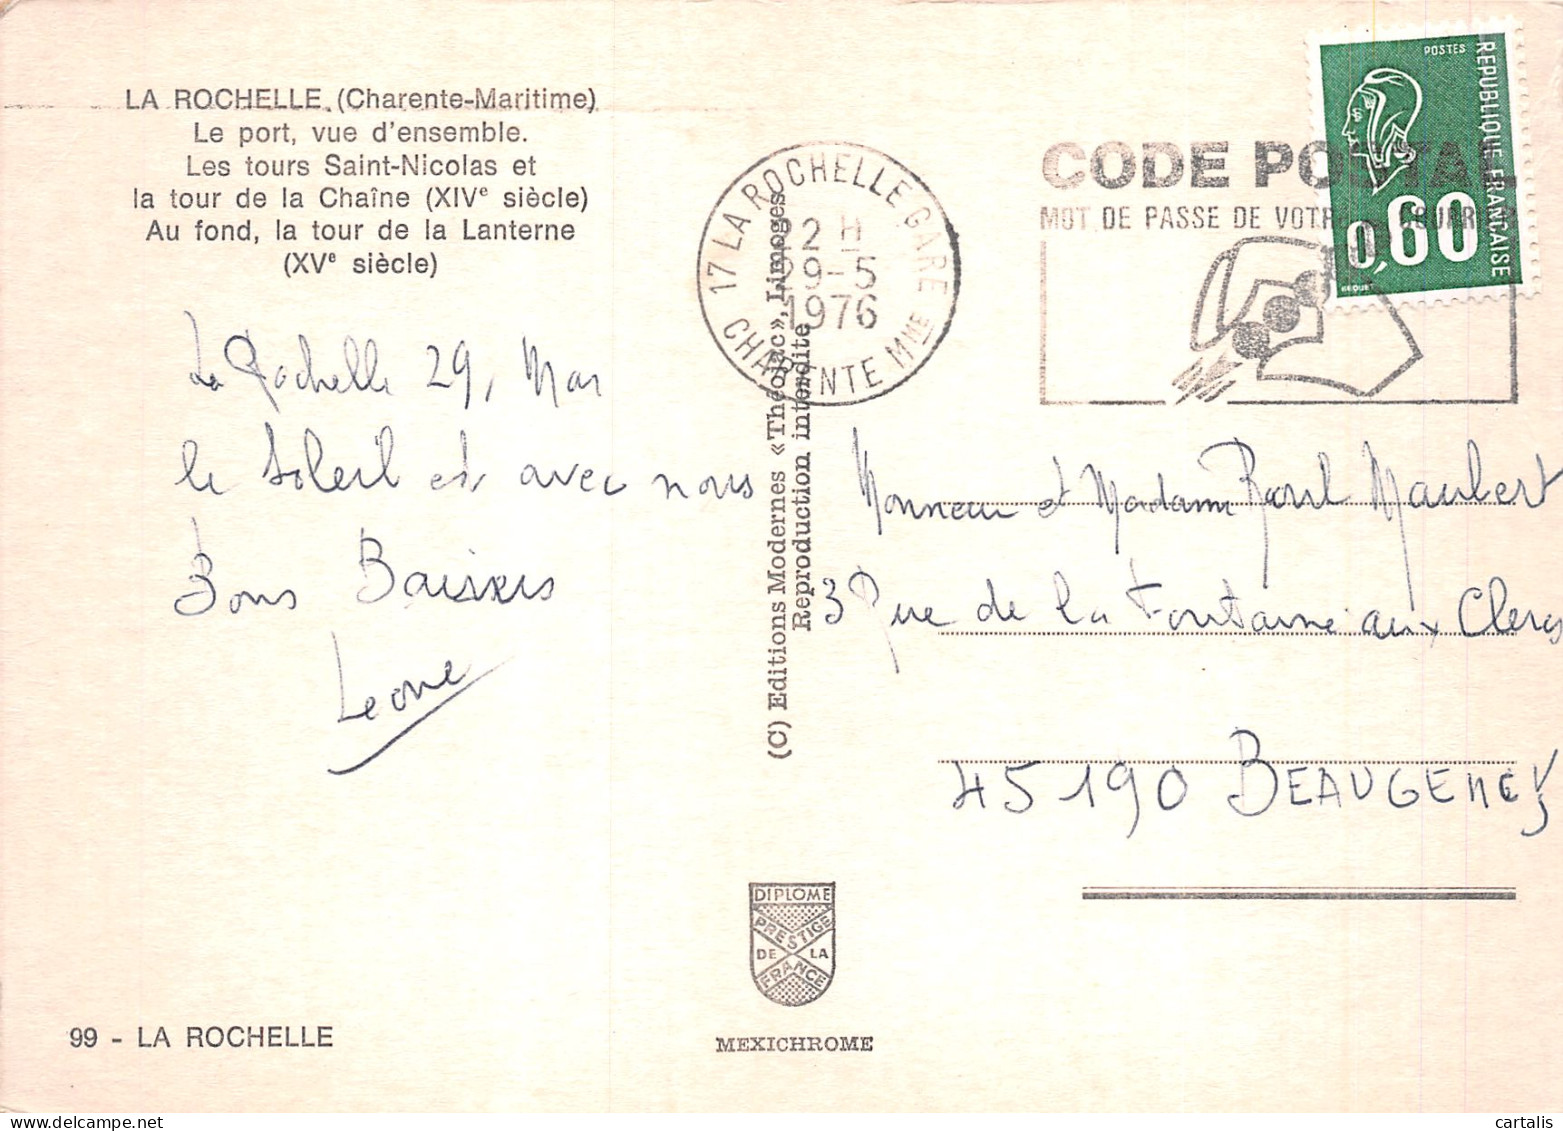 LA ROCHELLE (Charente-Maritime)
Le port, vue d'ensemble.
Les tours Saint-Nicolas et
la tour de la Chaîne (XIVe siècle)
Au fond, la tour de la Lanterne
(XVe siècle)
La Rochelle 29, Mai
le soleil est avec nous
Bons Baisers
Leone
99 - LA ROCHELLE
(C) Editions Modernes «Théojac», Limoges
Reproduction interdite
17 LA ROCHELLE GARE
22 H
29-5
1976
CHARENTE Mme
CODE POSTAL
MOT DE PASSE DE VOTRE COURRIER
POSTES
REPUBLIQUE FRANÇAISE
0,60
BEQUET
Monsieur et Madame Raoul Maubert
3 Rue de la Fontaine aux Clercs
45190 BEAUGENCY
DIPLOME
PRESTIGE
DE LA
FRANCE
MEXICHROME
cartalis